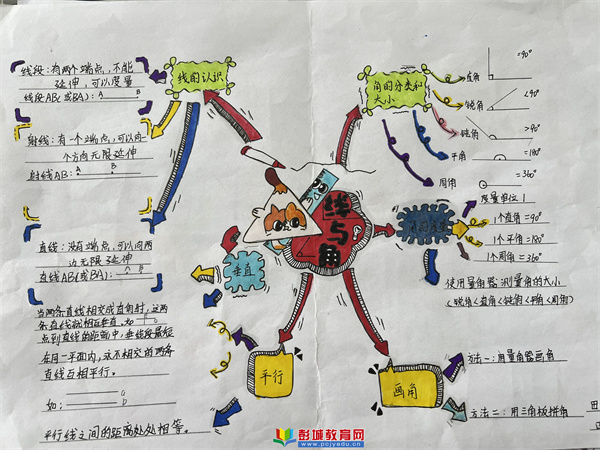 线段:有两个端点,不能
延伸,可以度量
线段AB(或BA):
A B
射线:有一个端点,可以向一
个方向无限延伸
射线AB:
A B
直线:没有端点,可以向两
边无限延伸
直线AB(或BA):
A B
当两条直线相交成直角时,这两
条直线就相互垂直,如
点到直线的距离中,垂线段最短
在同一平面内,
不相交的两条
直线互相平行。
如:
平行线之间的距离处处相等。
线的认识
线与角
垂直
平行
角的分类和
大小
直角
=90°
锐角
<90°
钝角
>90°
平角
=180°
周角
=360°
度量单位1
1个直角=90°
1个平角=180°
1个周角=360°
使用量角器测量角的大小
锐角<直角<钝角<平角<周角
画角
方法一:用量角器画角
方法二:用三角板拼角
彭城教育网
www.pcjyedu.cn